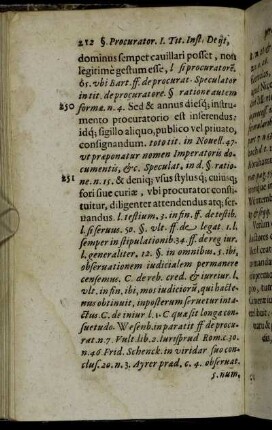 212 §. Procurator. l. Tit. Inst. De ijs,
dominus semper cavillari posset, non
legitimè gestum esse, l. si procuratorē.
65. vbi Bart. ff. de procurat. Speculator
in tit. de procuratore. § ratione autem
250 formæ. n. 4. Sed & annus diesq; instru-
mento procuratorio est inserendus:
idq; sigillo aliquo, publico vel privato,
consignandum. toto tit. in Novell. 47.
vt præponatur nomen Imperatoris do-
cumentis, &c. Speculat. in d. § ratio-
251 ne. n. 15. & deniq; vsus stylusq; cuiusq;
fori sive curiæ, vbi procurator consti-
tuitur, diligenter attendendus atq; ser-
vandus. l. testium. 3. in fin. ff. de testib.
l. si servus. 50. §. vlt. ff. de legat. 1. l.
semper in stipulationib. 34. ff. de reg iur.
l. generaliter. 12. §. in omnibus. 5. ibi,
observationem iudicialem permanere
censemus. C. de reb. cred. & iureiur. l.
vlt. in fin. ibi, mos iudiciorū, qui hacte-
nus obtinuit, inposterum servetur inta-
ctus. C. de iniur. l. 1. C. quæ sit longa con-
suetudo. Wesenb. in paratit ff de procu-
rat. n. 7. Vult. lib. 2. Iurisprud Rom. c. 30.
n. 46. Frid. Schenck. in viridar suo con-
clus. 20. n. 3. Ayrer prad. c. 4. observat.
5. num.